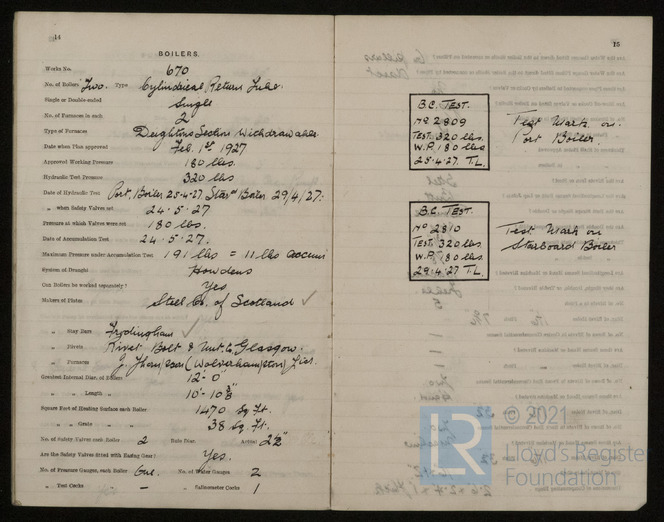 14
BOILERS.
Works No. 670
No. of Boilers Two. Type Cylindrical Return Tube.
Single or Double-ended Single
No. of Furnaces in each 2
Type of Furnaces Deightons Section Withdrawable.
Date when Plan approved Feb. 1st 1927
Approved Working Pressure 180 lbs.
Hydraulic Test Pressure 320 lbs
Date of Hydraulic Test Port Boiler 25.4.27 Starbd Boiler 29/4/27.
„ when Safety Valves set 24.5.27
Pressure at which Valves were set 180 lbs.
Date of Accumulation Test 24.5.27.
Maximum Pressure under Accumulation Test 191 lbs = 11 lbs accum
System of Draught Howdens
Can Boilers be worked separately? Yes
Makers of Plates Steel Co. of Scotland ✓
„ Stay Bars Frodingham ✓
„ Rivets Rivet Bolt & Nut Co Glasgow.
„ Furnaces
Greatest Internal Diam. of Boilers 12'-0"
„ „ Length „ 10'-10
Square Feet of Heating Surface each Boiler 1470 Sq. Ft.
„ „ Grate „ „ 38 Sq. Ft.
No. of Safety Valves each Boiler 2 Rule Diam. Actual
Are the Safety Valves fitted with Easing Gear? Yes.
No. of Pressure Gauges, each Boiler One. No. of Water Gauges 2
„ Test Cocks „ — „ Salinometer Cocks 1
15
B.C. TEST.
No 2809
TEST. 320 lbs.
W.P. 180 lbs
25.4.27. T.L.
Test Mark on
Port Boiler.
B.C. TEST.
No 2810
TEST. 320 lbs.
W.P. 180 lbs.
29.4.27 T.L.
Test Mark on
Starboard Boiler
LR
© 2021
Lloyd's Register
Foundation